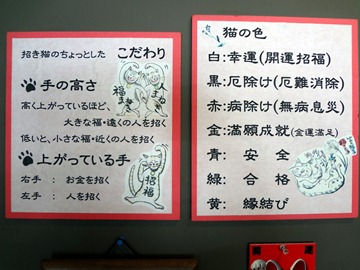 招き猫のちょっとした こだわり
手の高さ
高く上がっているほど、
大きな福・遠くの人を招く
低いと、小さな福・近くの人を招く
上がっている手
右手 : お金を招く
左手 : 人を招く
福まねき
人まねき
招福
猫の色
白:幸運(開運招福)
黒:厄除け(厄難消除)
赤:病除け(無病息災)
金:満願成就(金運満足)
青: 安 全
緑: 合 格
黄: 縁結び